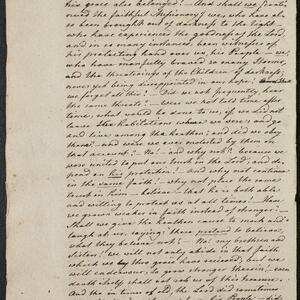 his grace also belonged! — And shall we
the faithful Missionary? we, who have al-
so been brought out of darkness to the light
who have experienced the goodness of the Lord,
and on so many instances, been witnesses of
his protecting hand over us, his People — we,
who have manfully braved so many Storms,
and the threatenings of the Children of darkness,
never yet being disappointed in our hope;
we forget all this? — Did we not frequently hear
the same threats? — Were we not told time after
time, what would be done to us, if we did not
leave the Habitations where we were, and go
and live among the heathen; and did we obey
them? — and were we ever molested by them on
that account? — No! — and why not? because we
were united to put our trust in the Lord, and de-
pend on his protection! — And why not continue
in the same faith? — Why not place the same
trust in him — believe — that he is both able
and willing to protect us at all times? — Have
we grown weaker in faith instead of stronger? —
Shall we give the heathen cause to mock and
laugh at us, saying: they pretend to believe,
yet they believe not? — No! my brethren and
Sisters! we will not only abide in that faith
which we have once received, but we
will endeavour, to grow stronger therein, — even
death itself shall not rob us of this treasure.
And tho' in times of old, the Lord did sometimes